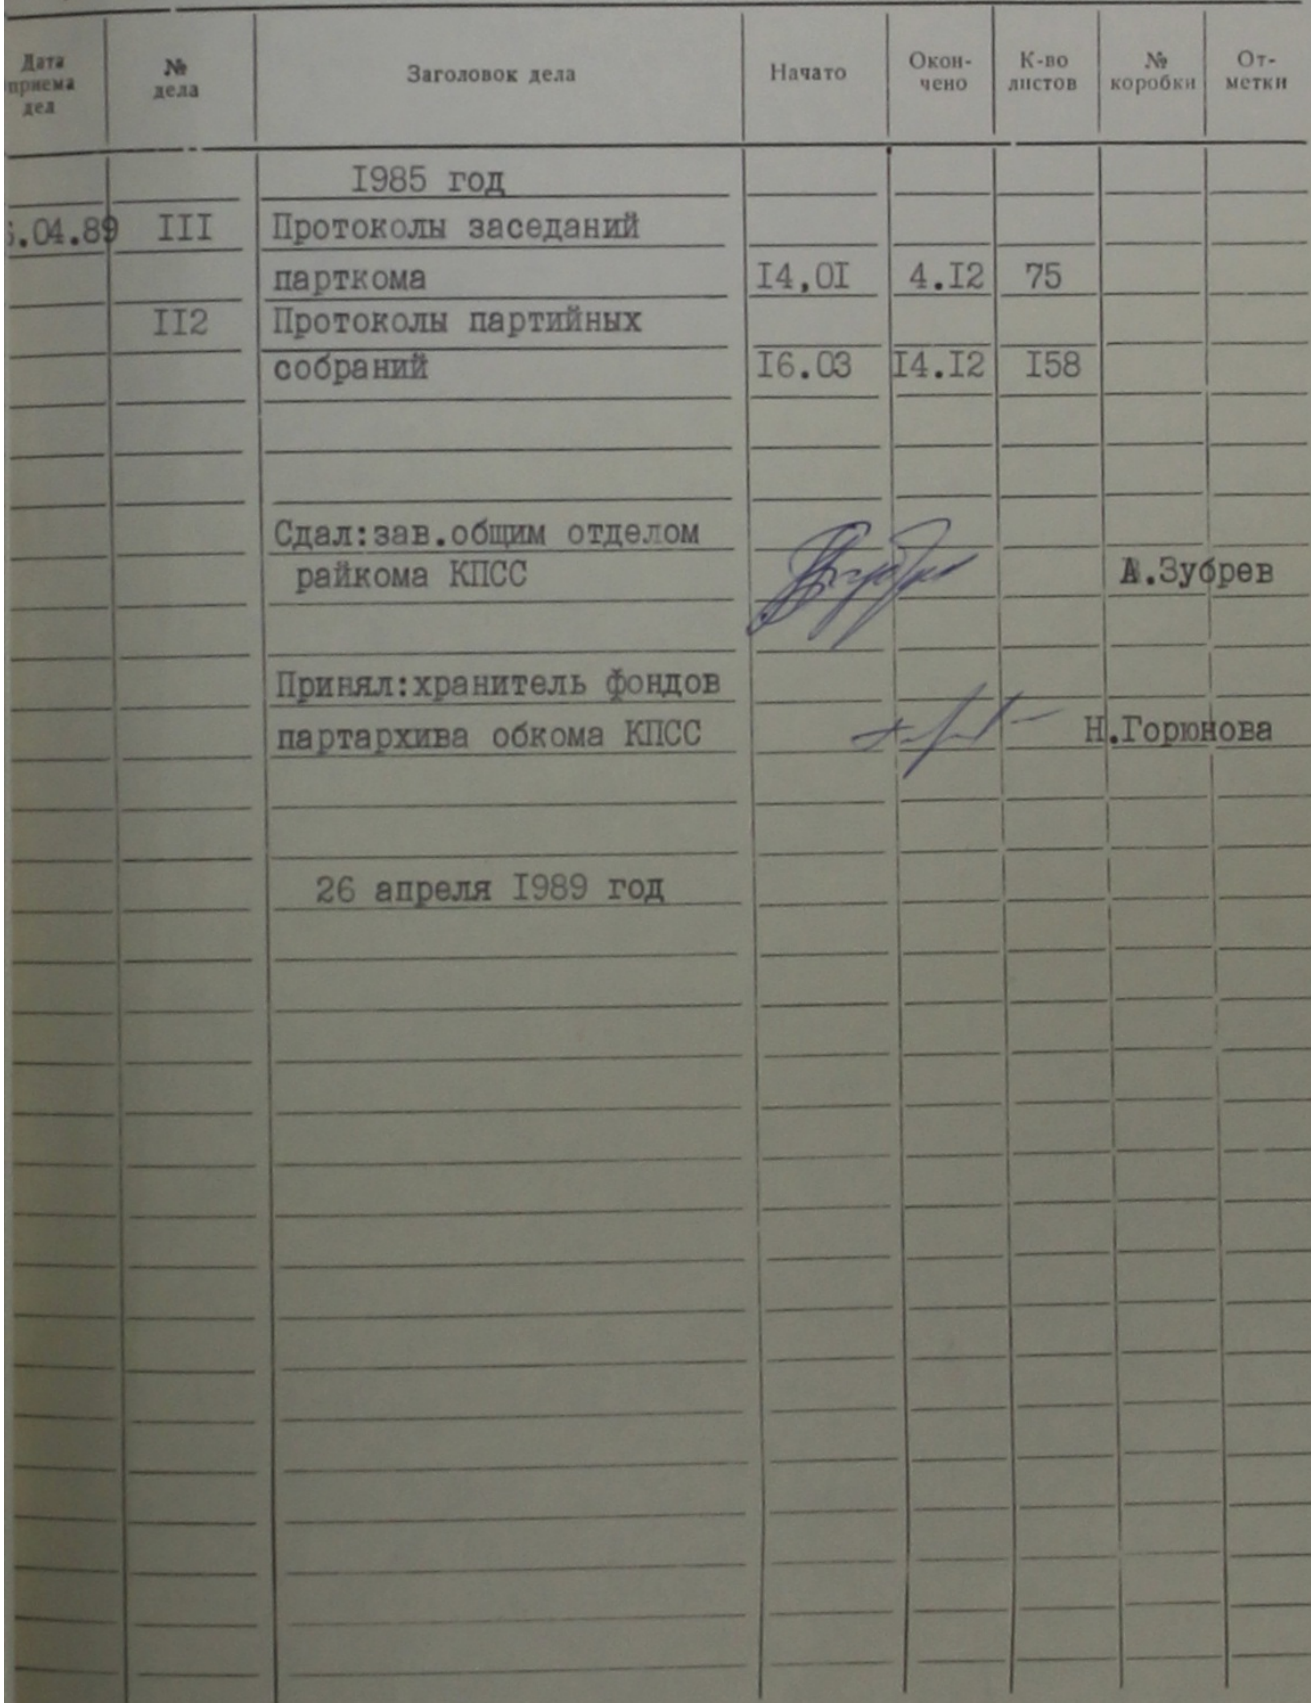 Дата приема дел № дела Заголовок дела Начато Окончено К-во листов № коробки Отметки
I985 год
6.04.89 III Протоколы заседаний
парткома I4,0I 4.I2 75
II2 Протоколы партийных
собраний I6.03 I4.I2 I58
Сдал:зав.общим отделом
райкома КПСС А.Зубрев
Принял:хранитель фондов
партархива обкома КПСС Н.Горюнова
26 апреля I989 год